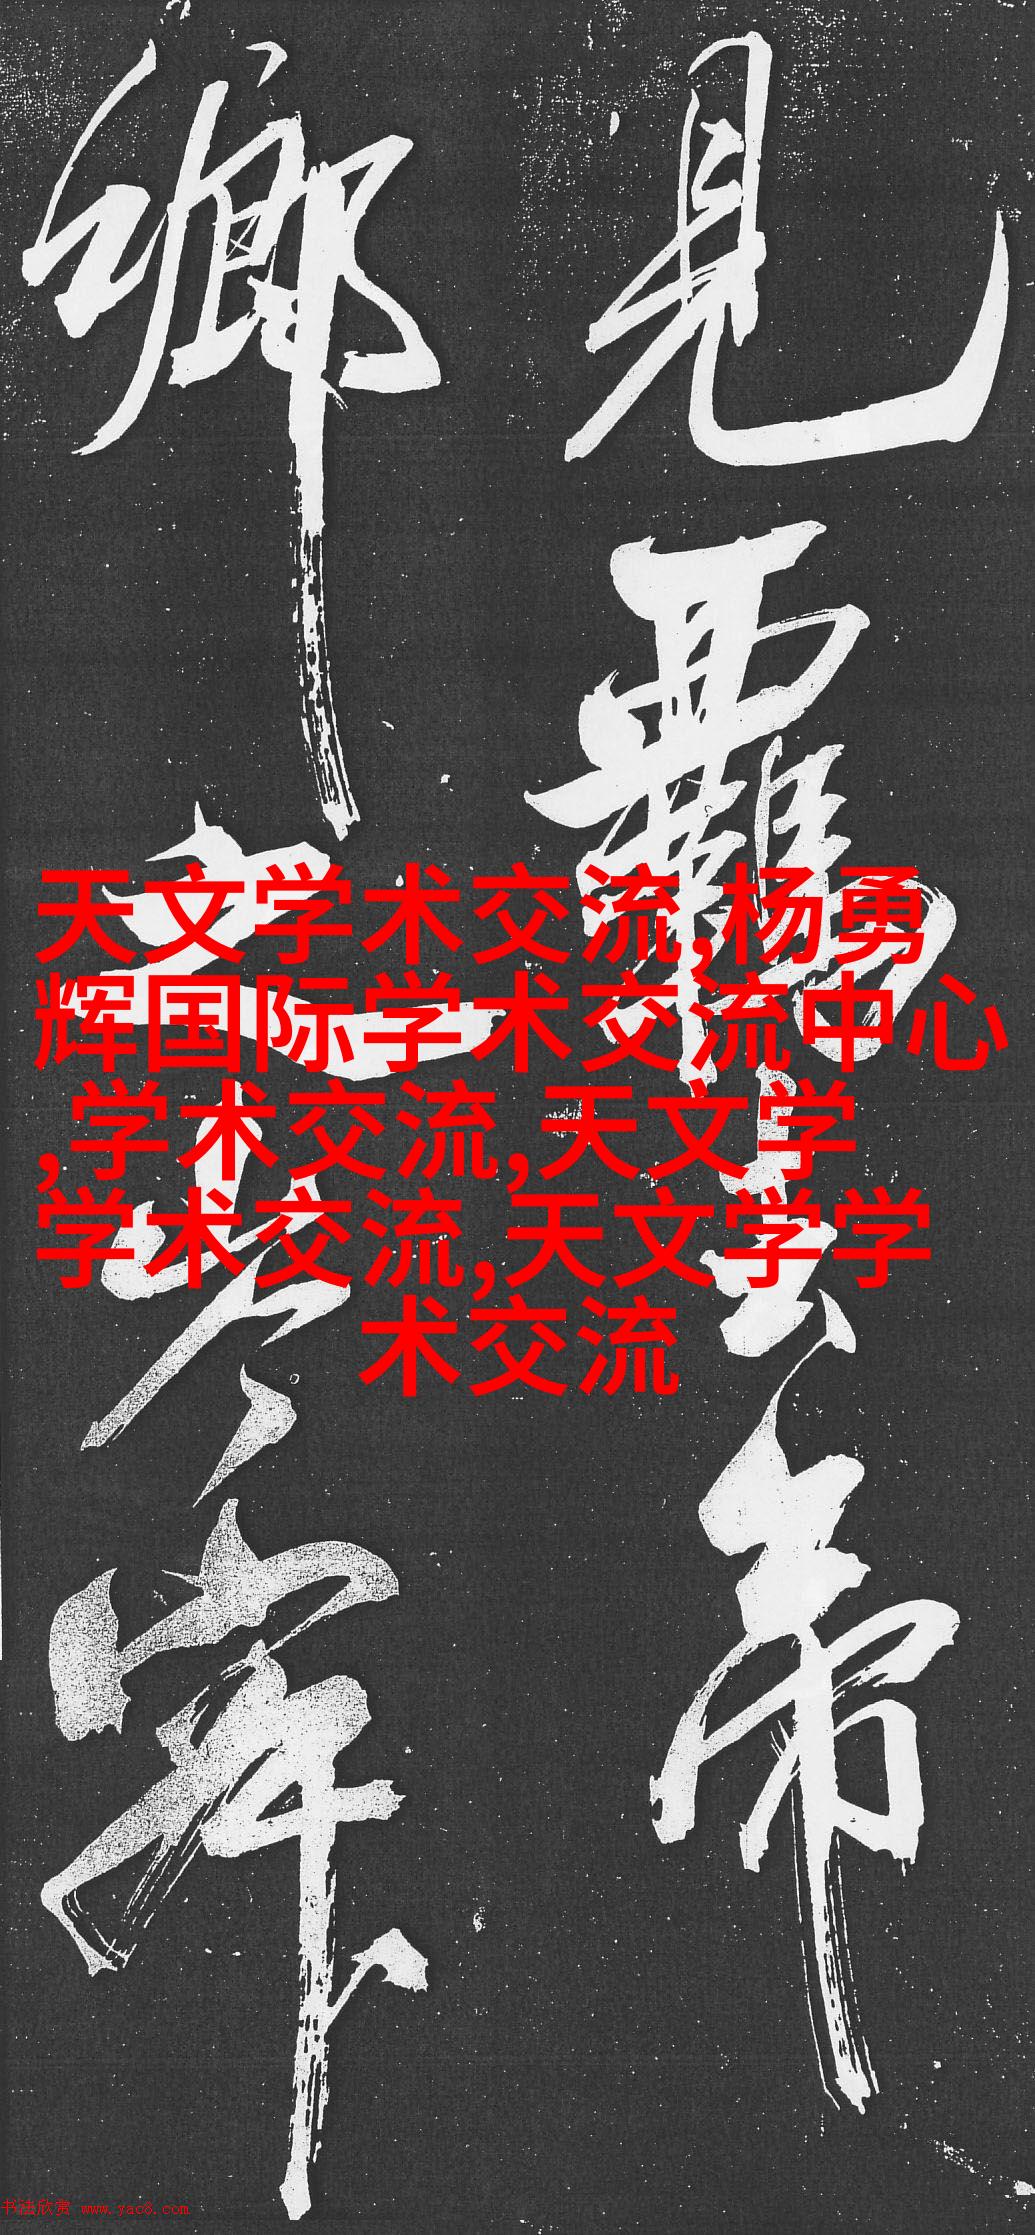 見羈帝
鄉之
天文学术交流,杨勇
辉国际学术交流中心
,学术交流,天文学
学术交流,天文学学
术交流
书法欣赏 www.yac8.com